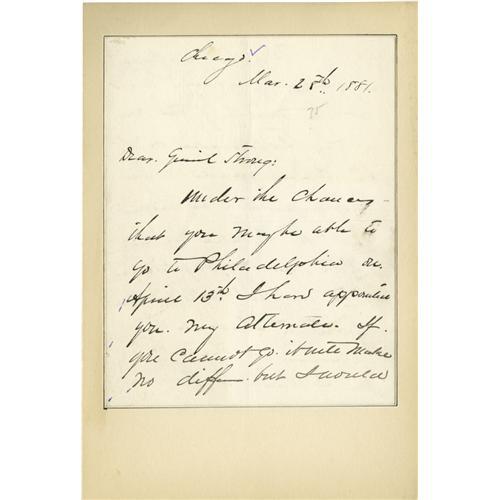 Chicago.
Mar. 28th 1881.
Dear Genl Strong:
Under the chances
that you maybe able to
go to Philadelphia on
April 13th I have appointed
you my alternate. If
you cannot go it will make
no differ but I would